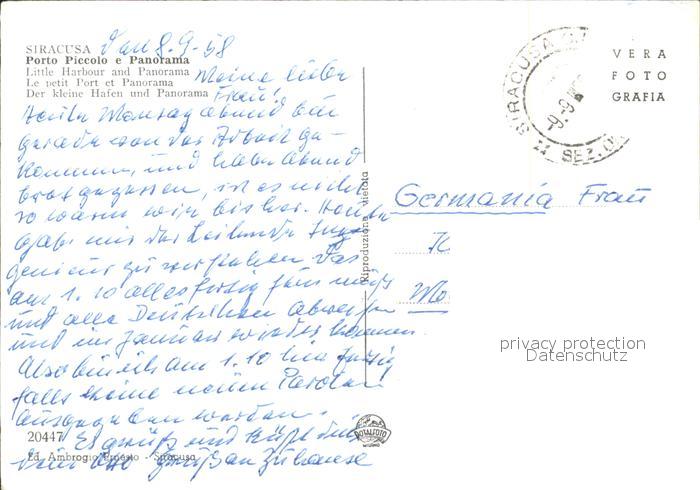 SIRACUSA den 8.9.58
Porto Piccolo e Panorama
Little Harbour and Panorama Meine liebe
Le petit Port et Panorama
Der kleine Hafen und Panorama Frau!
Heute Montag abend bin
gerade von der Arbeit ge-
kommen, und habe abend
brot gegessen, ist es nicht
so warm wie bisher. Heute
gab mir der leitende Inge-
genieur zu verstehen das
am 1.10 alles fertig für mich
und alle Deutschen
und im Januar wieder kommen.
Also bin ich am 1.10 hier fertig
falls keine neuen Parolen
ausgegeben werden.
Es grüßt und küßt dich
dein Otto Grüß an Zuhause
20447
Ed. Ambrogio Ernesto - Siracusa
Riproduzione vietata
SIRACUSA
-9.9
SEZ.
VERA
FOTO
GRAFIA
Germania Frau
privacy protection
Datenschutz